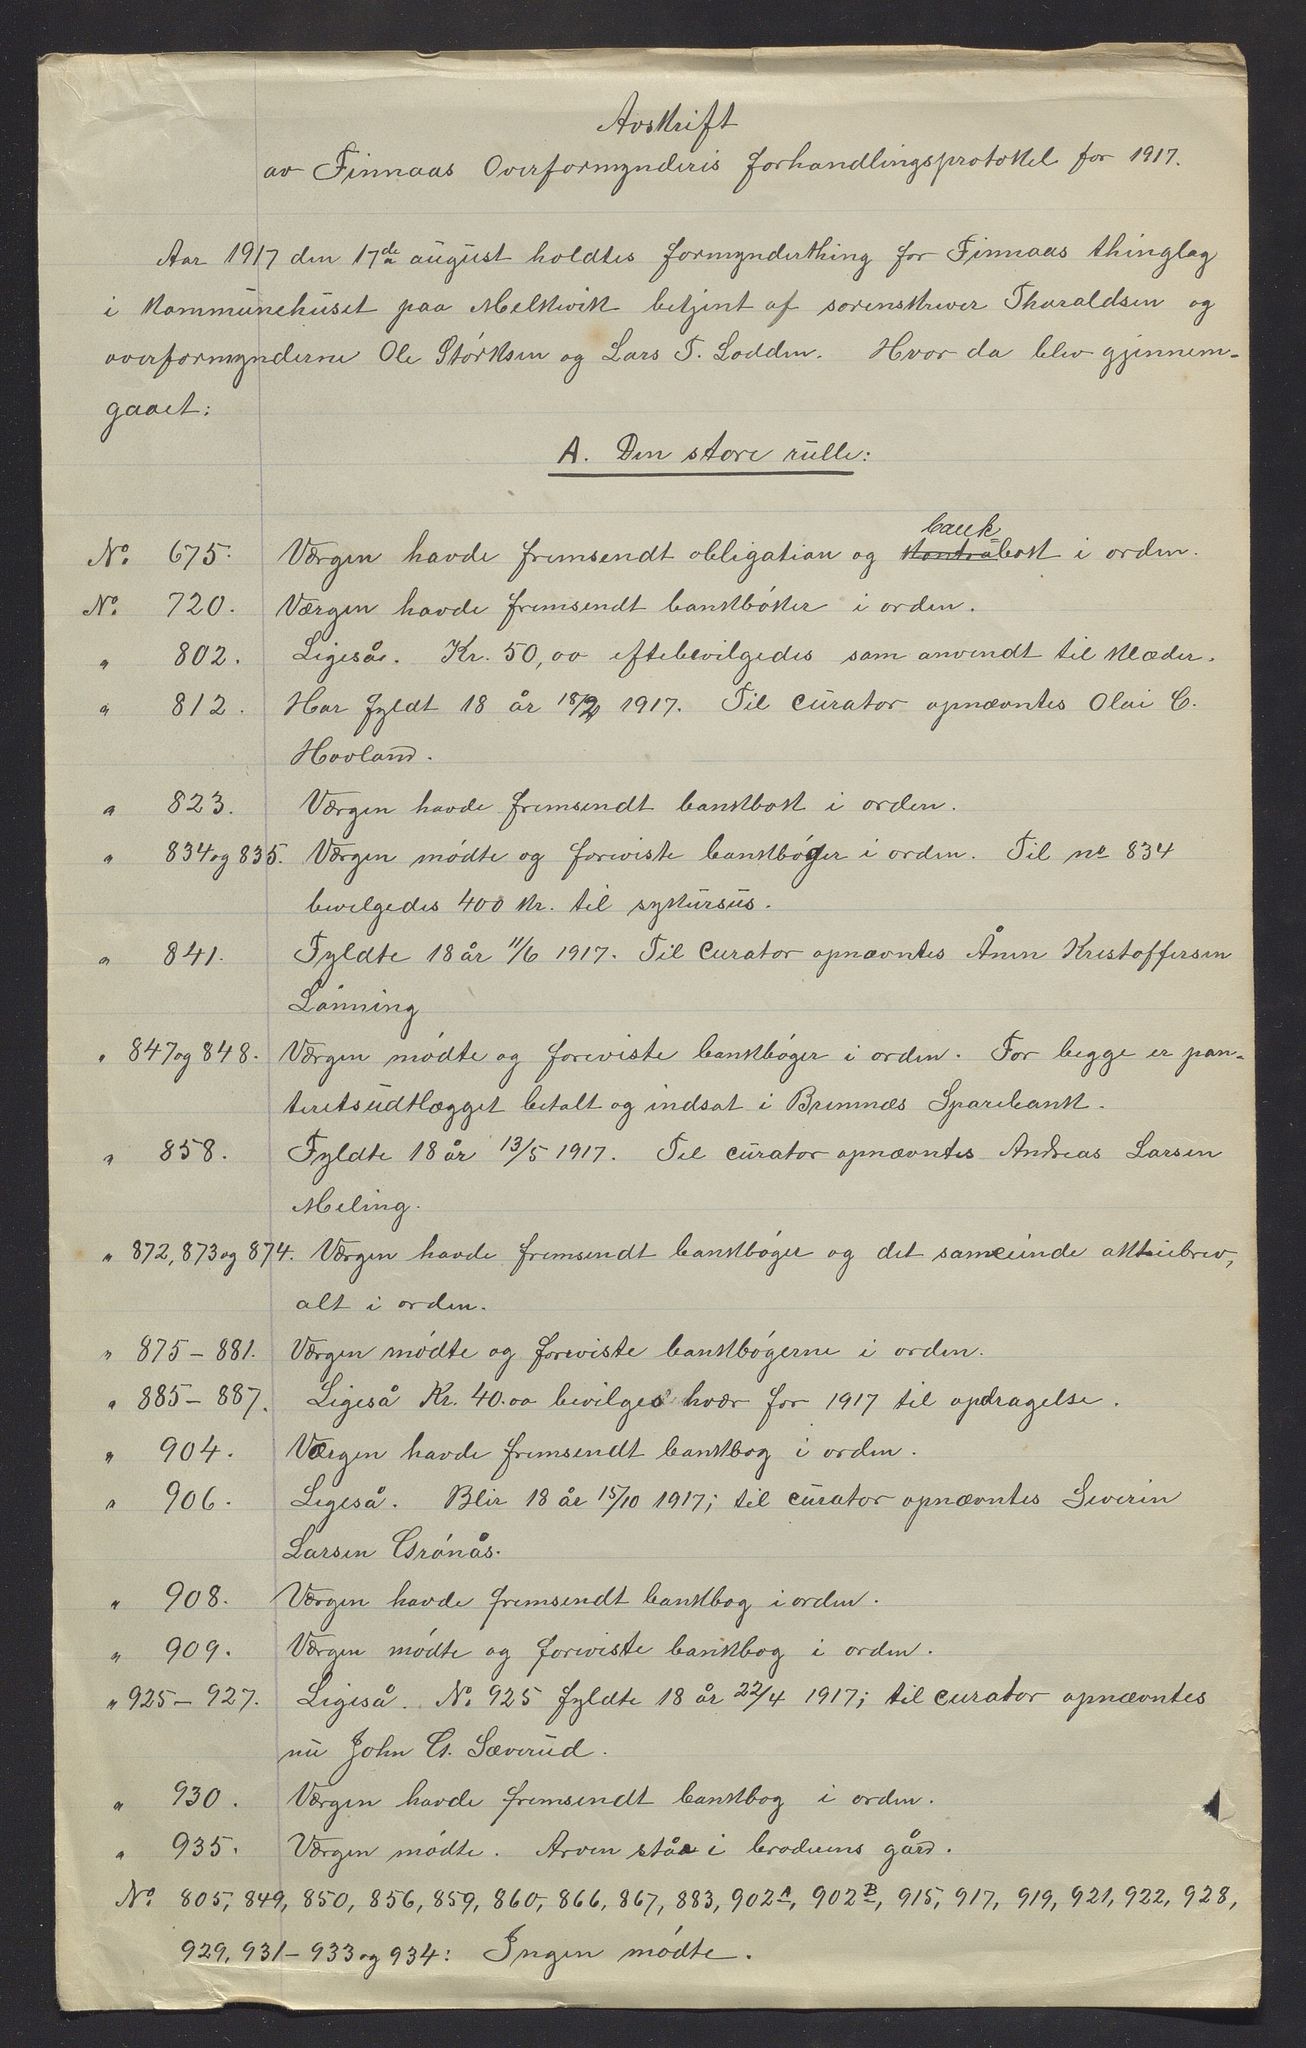 Avskrift
av Finnaas Overformynderis forhandlingsprotokel for 1917.
Aar 1917 den 17de august holdtes formynderthing for Finnaas thinglag
i kommunehuset paa Melkevik betjent af sorenskriver Tharaldsen og
overformynderne Ole Størksen og Lars T. Lodden. Hvor da blev gjennem-
gaaet:
A. Den store rulle:
bank=
No. 675. Værgen havde fremsendt obligation og kontrabok i orden.
No. 720. Værgen havde fremsendt bankbøker i orden.
" 802. Ligeså. Kr. 50,00 eftebevilgedes som anvendt til klæder.
" 812. Har fyldt 18 år 18/2 1917. Til curator opnævntes Olai C.
Hovland.
" 823. Værgen havde fremsendt bankbok i orden.
" 834 og 835. Værgen mødte og foreviste bankbøger i orden. Til no 834
bevilgedes 400 kr. til sykursus.
" 841. Fyldte 18 år 11/6 1917. Til curator opnævntes Ånen Kristoffersen
Lønning
" 847 og 848. Værgen mødte og foreviste bankbøger i orden. For begge er pan-
teretsudtlægget betalt og indsat i Bremnæs Sparebank.
" 858. Fyldte 18 år 13/5 1917. Til curator opnævntes Andreas Larsen
Meling.
" 872, 873 og 874. Værgen havde fremsendt bankbøger og det sameiende aktiebrev,
alt i orden.
" 875 – 881. Værgen mødte og foreviste bankbøgerne i orden.
" 885 – 887. Ligeså Kr. 40.00 bevilges hver for 1917 til opdragelse.
" 904. Værgen havde fremsendt bankbog i orden.
" 906. Ligeså. Blir 18 år 15/10 1917; til curator opnævntes Severin
Larsen Grønås.
" 908. Værgen havde fremsendt bankbog i orden.
" 909. Værgen mødte og foreviste bankbog i orden.
" 925 – 927. Ligeså. No. 925 fyldte 18 år 22/4 1917; til curator opnævntes
nu John G. Sæverud.
" 930. Værgen havde fremsendt bankbog i orden.
" 935. Værgen mødte. Arven står i broderens gård.
No. 805, 849, 850, 856, 859, 860, 866, 867, 883, 902A, 902B, 915, 917, 919, 921, 922, 928,
929, 931 – 933 og 934: Ingen mødte.